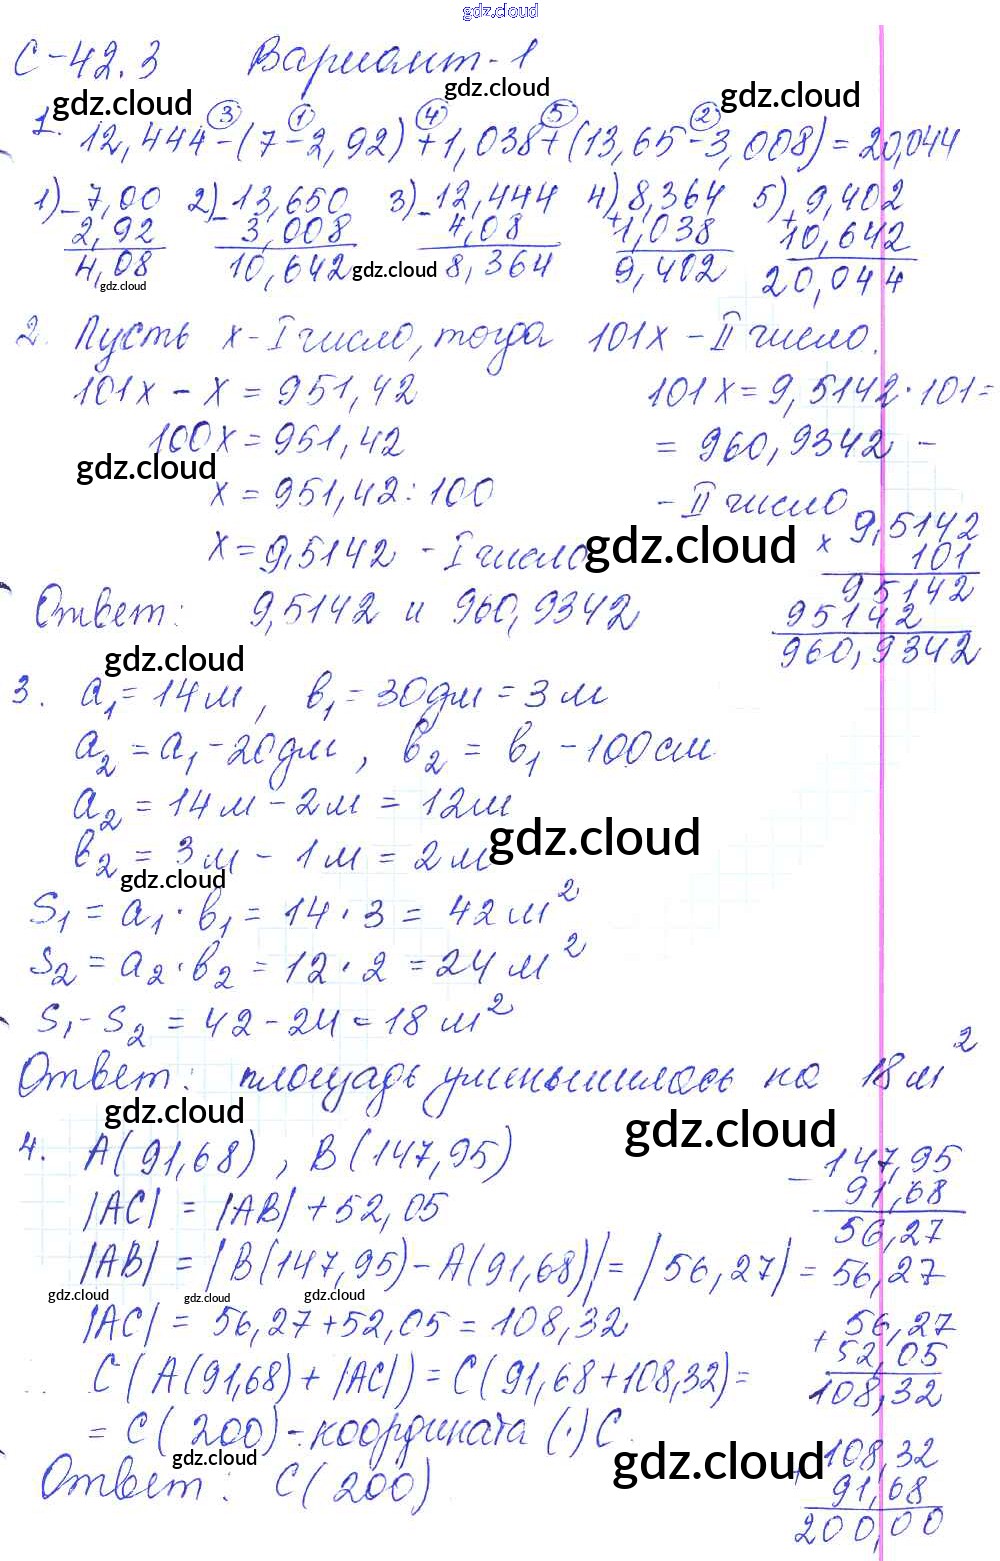 gdz.cloud
С-42.3 Вариант-1
gdz.cloud gdz.cloud gdz.cloud
③ ① ④ ⑤ ②
1. 12,444-(7-2,92)+1,038+(13,65-3,008)=20,044
1) -7,00 2) -13,650 3) -12,444 4) 8,364 5) 9,402
2,92 3,008 4,08 +1,038 +10,642
4,08 10,642 8,364 9,402 20,044
gdz.cloud gdz.cloud
2. Пусть x-I число, тогда 101x-II число.
101x - x = 951,42 101x = 9,5142·101=
100x = 951,42 = 960,9342 -
gdz.cloud
x = 951,42:100 - II число
x = 9,5142 - I число
gdz.cloud
9,5142
× 101
95142
95142
960,9342
Ответ: 9,5142 и 960,9342
gdz.cloud
3. a₁ = 14м, в₁ = 30дм = 3м
a₂ = a₁ - 20дм, в₂ = в₁ - 100см
a₂ = 14м - 2м = 12м
в₂ = 3м - 1м = 2м
gdz.cloud
gdz.cloud
S₁ = a₁·в₁ = 14·3 = 42м²
S₂ = a₂·в₂ = 12·2 = 24м²
S₁-S₂ = 42-24 = 18м²
Ответ: площадь уменьшилась на 18м²
gdz.cloud gdz.cloud
4. A(91,68), B(147,95)
|AC| = |AB| + 52,05
|AB| = |B(147,95) - A(91,68)| = |56,27| = 56,27
gdz.cloud gdz.cloud gdz.cloud
|AC| = 56,27+52,05 = 108,32
C(A(91,68) + |AC|) = C(91,68+108,32) =
= C(200) - координата (·) C.
gdz.cloud gdz.cloud
Ответ: C(200)
-147,95
91,68
56,27
56,27
+52,05
108,32
108,32
+91,68
200,00